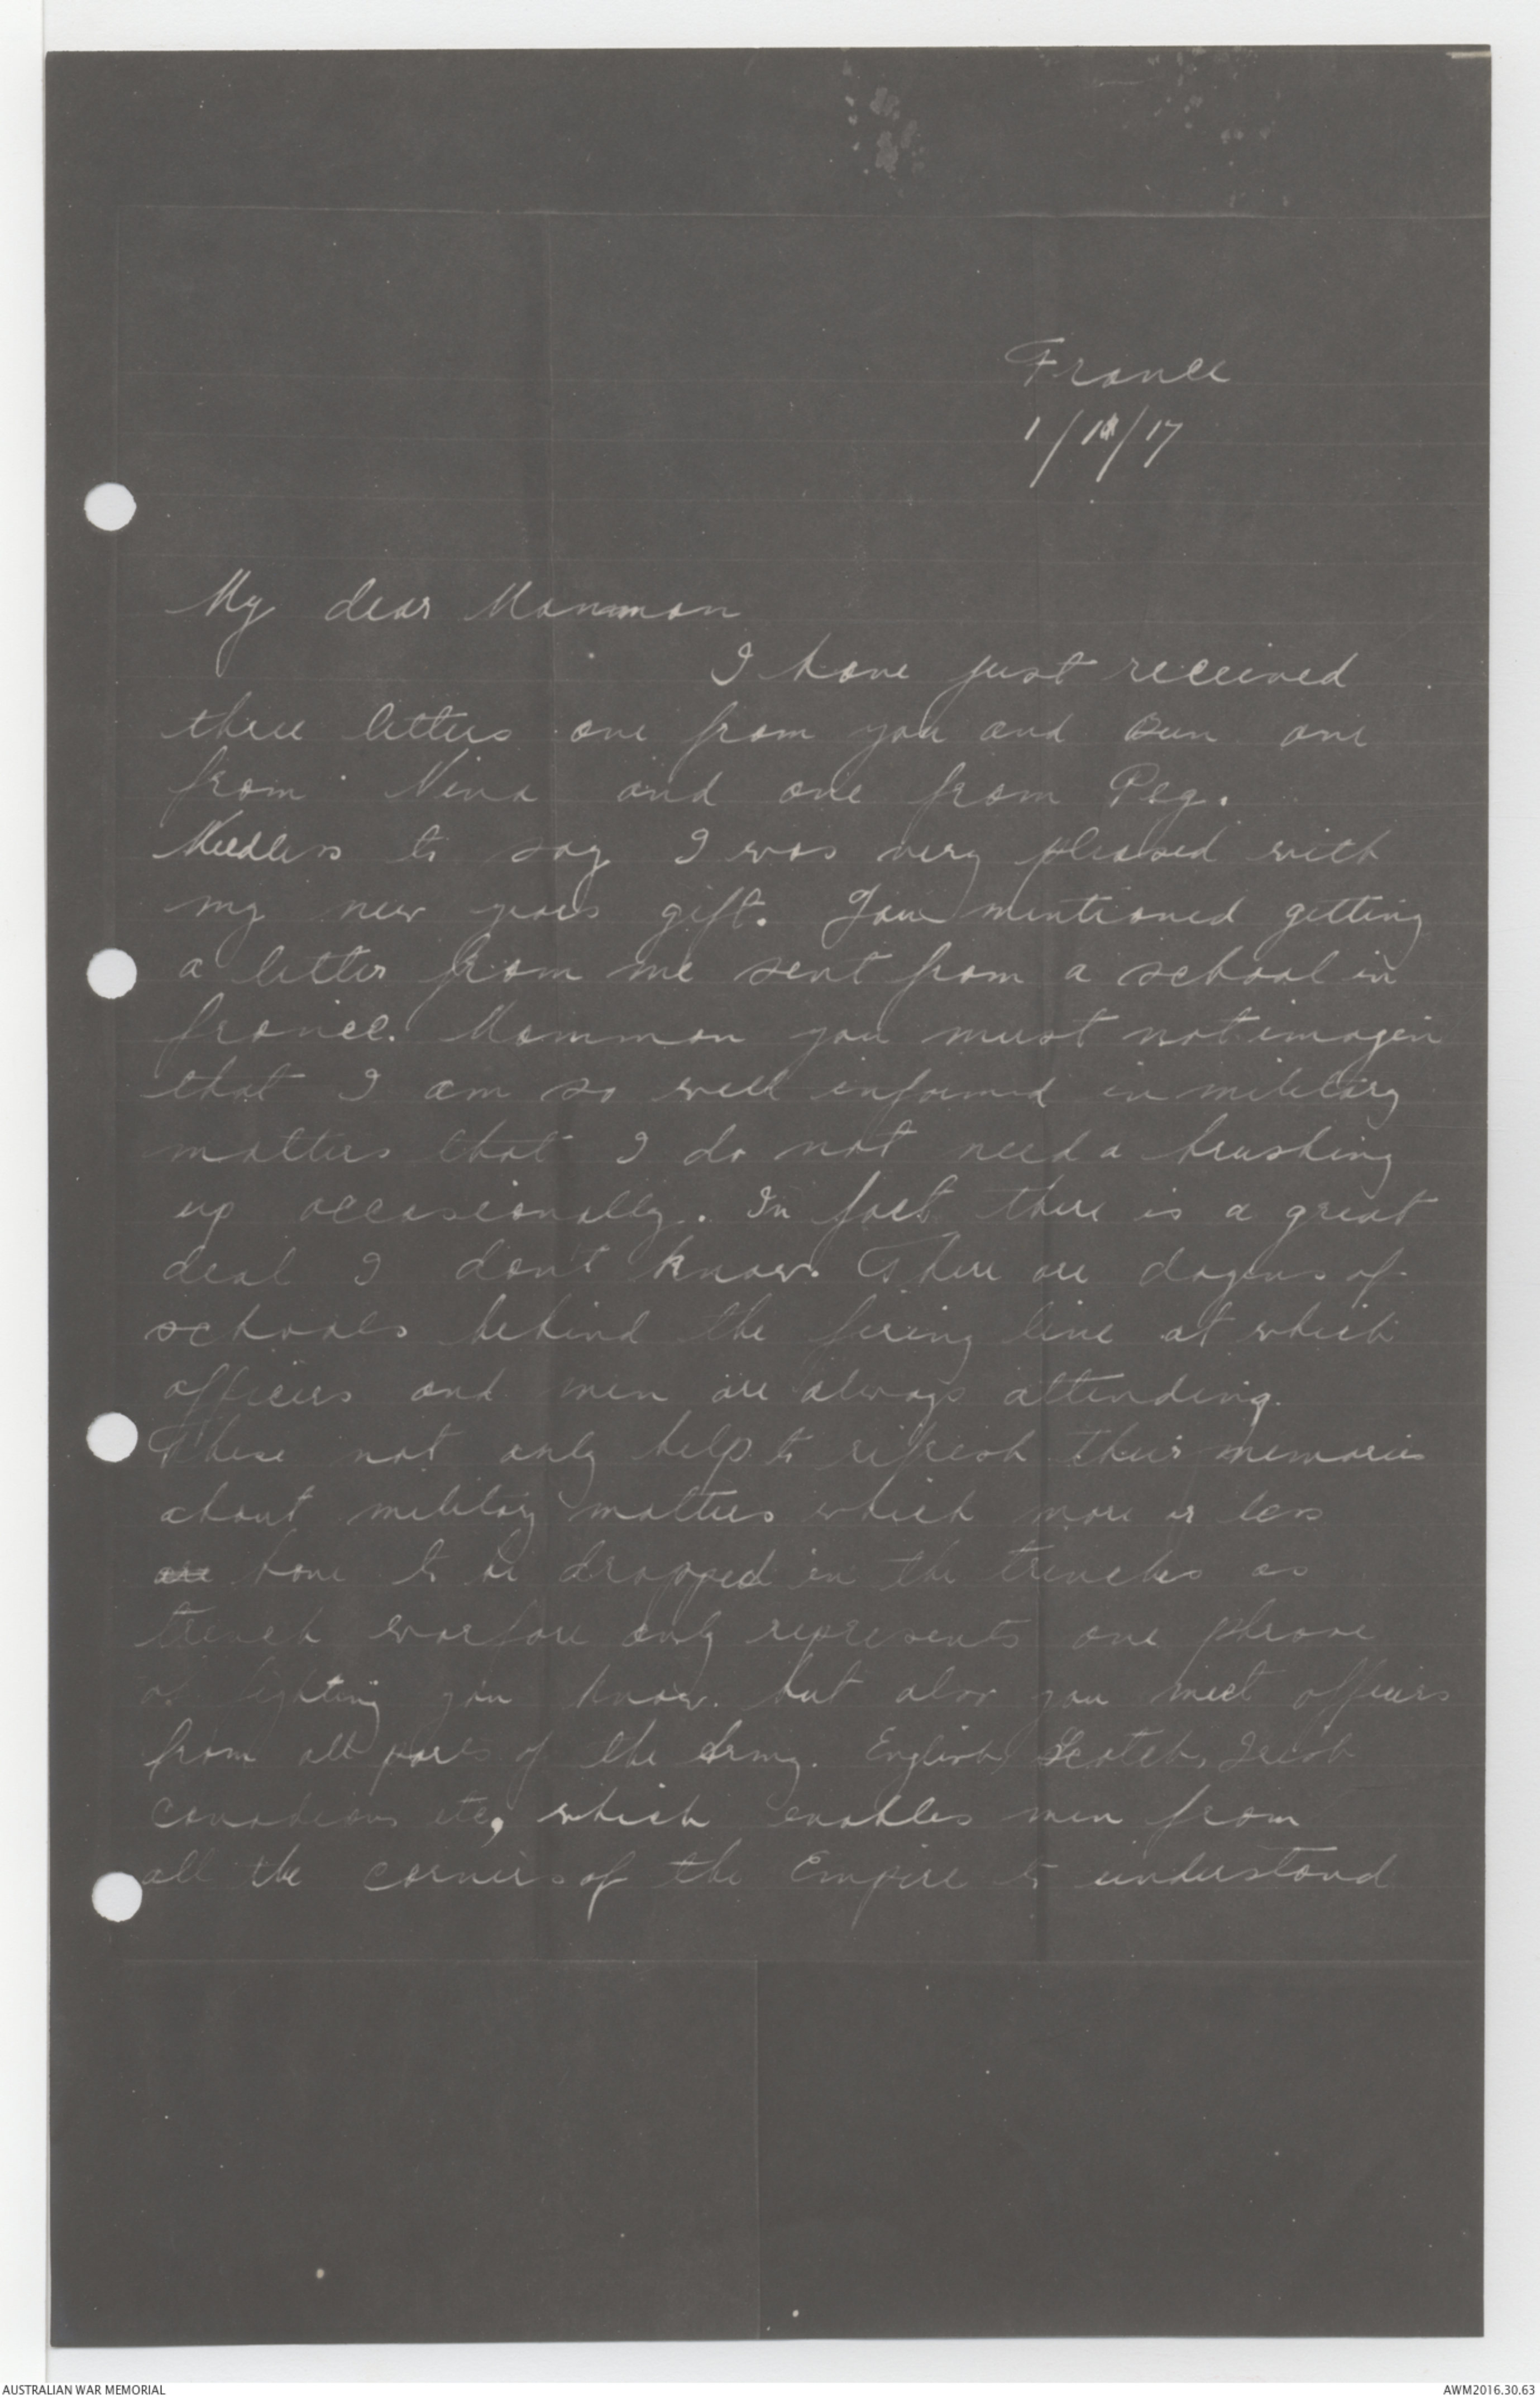 France
1/1/17
My dear Mamman
I have just received
three letters one from you and one
from Nina and one from Peg.
Needless to say I was very pleased with
my new years gift. You mentioned getting
a letter from me sent from a school in
france. Mamman you must not imagin
that I am so well informed in military
matters that I do not need a brushing
up occasionally. In fact there is a great
deal I don't know. There are dozens of
schools behind the firing line at which
officers and men are always attending.
These not only help to refresh their memories
about military matters which more or less
are have to be dropped in the trenches as
trench warfare only represents one phrase
of fighting you know. but also you meet officers
from all parts of the Army. English, Scotch, Irish
Canadians etc, which enables men from
all the corners of the Empire to understand
AUSTRALIAN WAR MEMORIAL
AWM2016.30.63